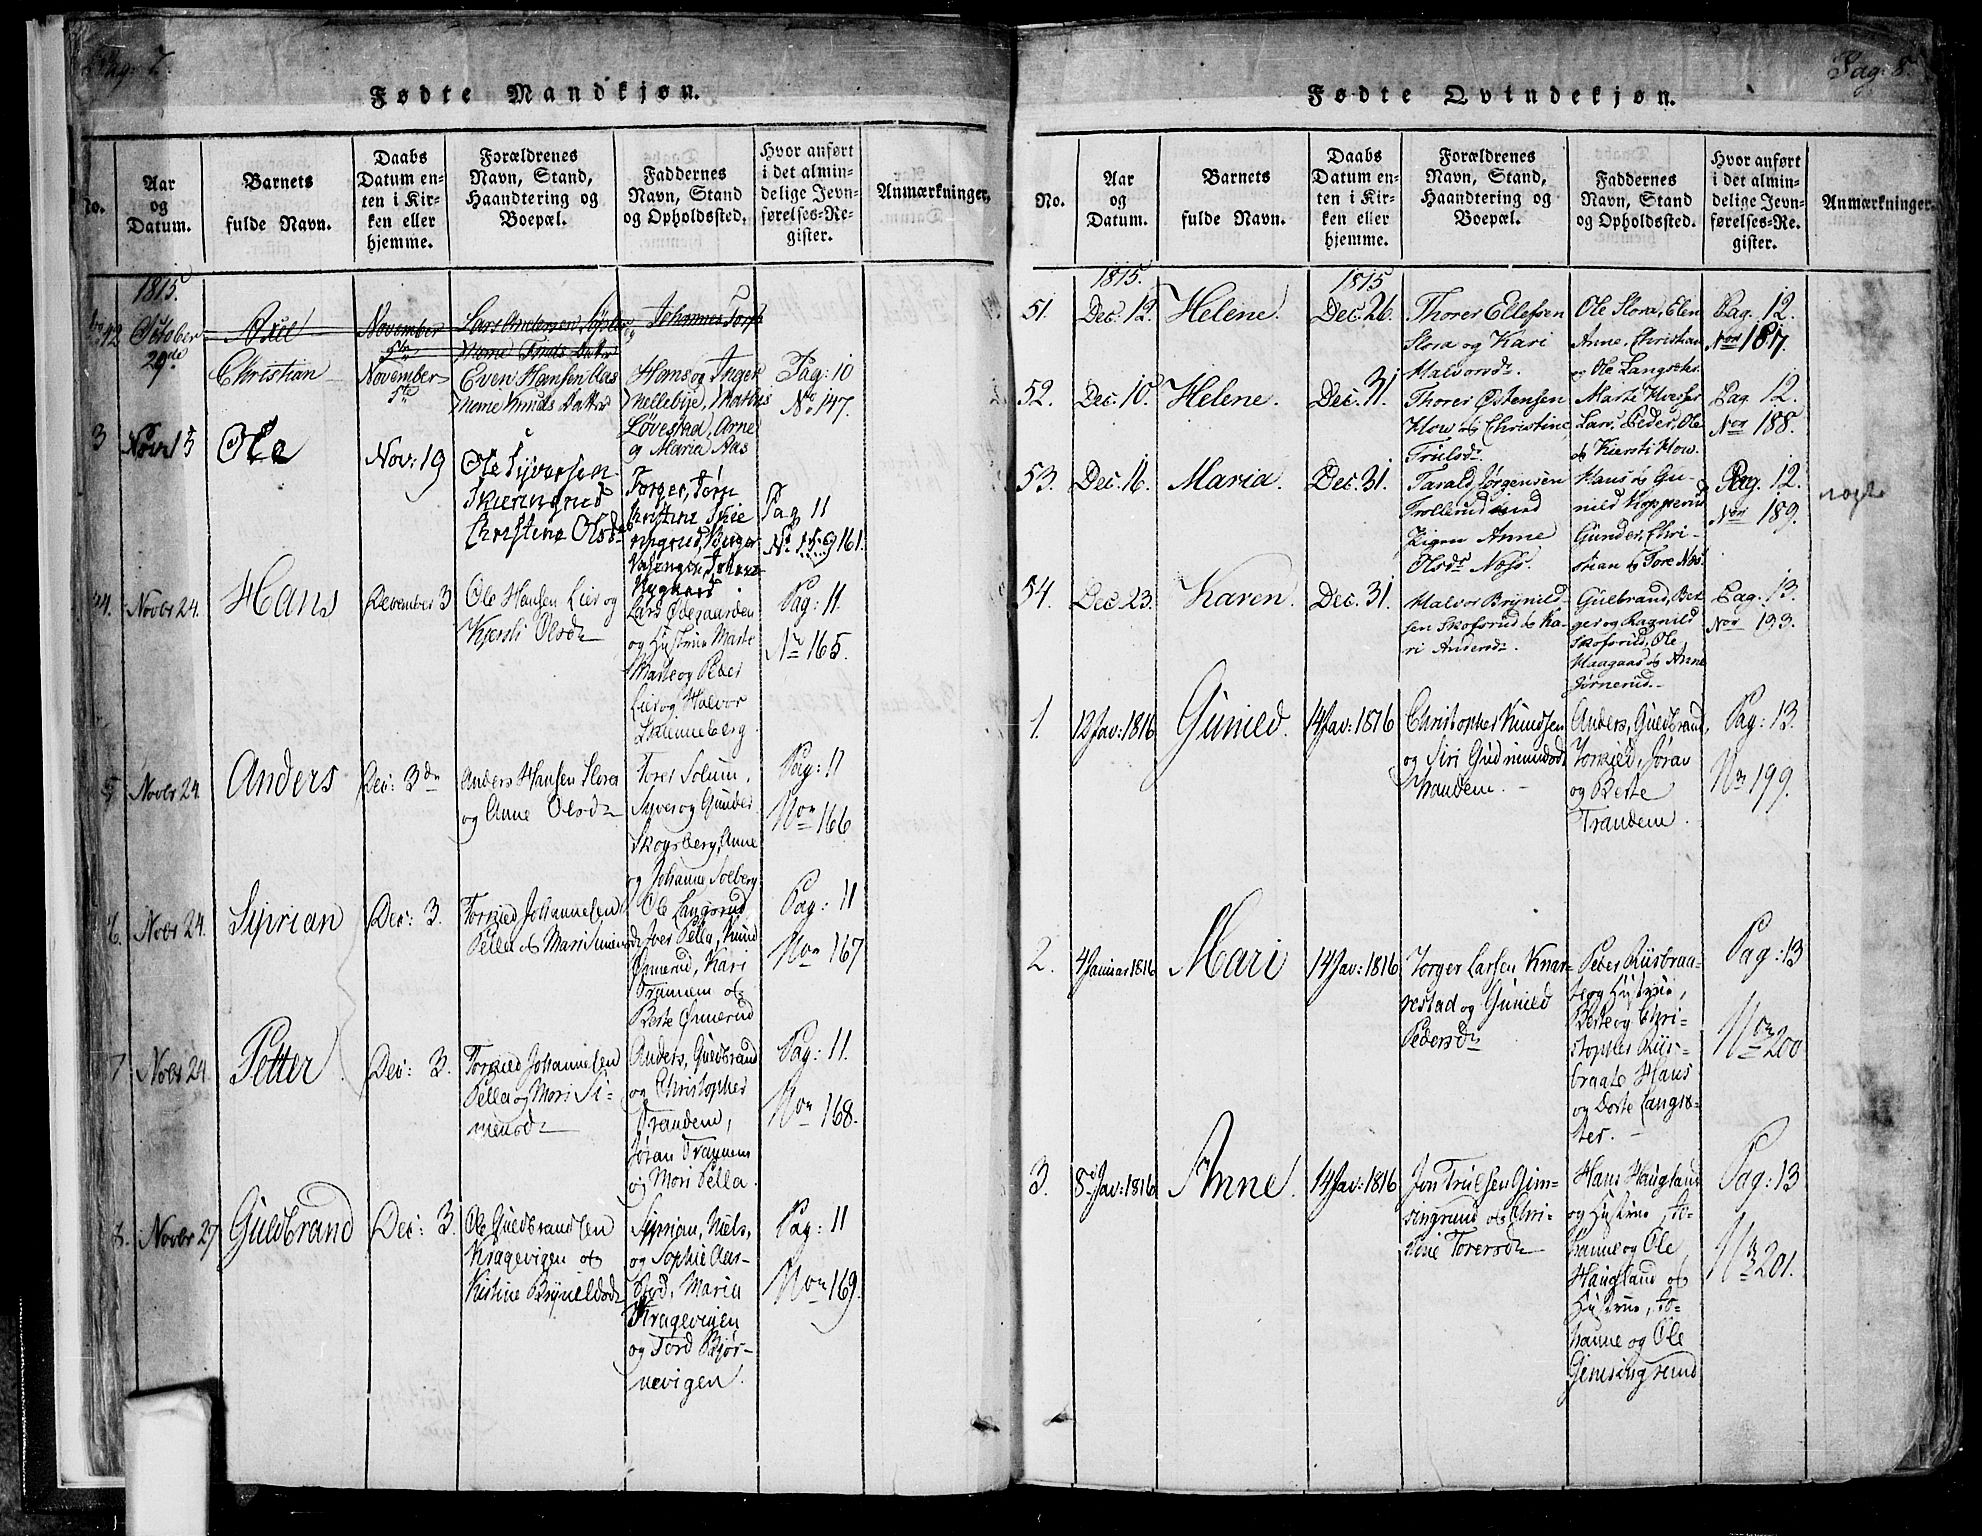 Pag: 7.
Fødte Mandkjøn.
No.
Aar
og
Datum.
Barnets
fulde Navn.
Daabs
Datum en-
ten i Kir-
ken eller
hjemme.
Forældrenes
Navn, Stand,
Haandtering og
Boepæl.
Faddernes
Navn, Stand
og Opholdssted.
Hvor anført
i det almin-
delige Jevn-
førelses-Re-
gister.
Anmærkninger.
1815.
October
29de
Axel
November
5te
Lars Andersen
Johannes Torp
Christian
November
5te
Even Hansen Aas
Knuds Datter
Hans og Inger
Mellebye, Mathis
Løvestad, Arne
og Maria Aas
Pag: 10
No 147.
3
Novr 15
Ole
Nov: 19
Ole Syversen
Skieringrud
Christine Olsdr
Torger, Torp
Christine Skie
ringrud, Birger
Pag 11
No 161.
24.
Novbr 24.
Hans
December 3
Ole Hansen Lier og
Kjersti Olsdr
Lars Ødegaarden
og Hustrue Marte
Marte og Peder
Lier og Halvor
Pag: 11.
No 165.
5
Novbr 24.
Anders
Dec: 3de
Anders Hansen Slora
og Anne Olsdr
Torer Solum,
Syver og Gunder
Skogsberg, Anne
og Johanne Solberg
Pag: 11
Nor 166
6.
Novbr 24.
Siprian
Dec: 3.
Torkied Johannesen
Pella og Mari Simensdr
Ole Langsrud,
Iver Pella, Knud
Ømerud, Kari
Trannem og
Berte Ømerud
Pag: 11
Nor 167
7
Novbr 24.
Petter
Dec: 3.
Torkied Johannesen
Pella og Mari Si-
mensdr
Anders, Guldbrand
og Christopher
Trandem,
Jøran Trannem
og Mari Pella.
Pag: 11.
Nor 168.
8.
Novbr 27
Guldbrand
Dec: 3.
Ole Guldbrandsen
Kragevigen og
Kistine Brynildsdr
Siprian, Niels,
og Sophie Aas-
stod, Maria
Kragevigen
og Tord Bjør-
nevigen.
Pag: 11
Nor 169.
Pag: 8.
Fødte Qvindekjøn.
No.
Aar
og
Datum.
Barnets
fulde Navn.
Daabs
Datum en-
ten i Kir-
ken eller
hjemme.
Forældrenes
Navn, Stand,
Haandtering og
Boepæl.
Faddernes
Navn, Stand
og Opholdssted.
Hvor anført
i det almin-
delige Jevn-
førelses-Re-
gister.
Anmærkninger.
1815.
1815
51.
Dec. 12.
Helene.
Dec. 26.
Thorer Ellefsen
Slora og Kari
Halvorsdr.
Ole Slora, Elen
Anne, Christian
og Ole Langseth.
Pag. 12.
Nor 187.
52.
Dec. 10.
Helene.
Dec. 31.
Thorer Østensen
Mow og Christine
Trulsdr.
Marte
Lars, Peder, Ole
og Kiersti Mow.
Pag. 12.
Nor 188.
53.
Dec. 16.
Maria.
Dec. 31.
Tarald Jørgensen
Trollerud med
Pigen Anne
Olsdr Næss.
Hans og Gu-
nild Kopperud
Gunder, Chri-
stian og Tore Næs.
Pag. 12.
Nor 189.
54.
Dec 23.
Karen.
Dec. 31.
Halvor Brynild-
sen Skofsrud og Ka-
ri Andersdr.
Gulbrand, Ber-
ger og Ragnild
Skofsrud, Ole
Haagaas og Anne
Jørnerud.
Pag. 13.
Nor 193.
1.
12 Jav: 1816
Gunild.
14 Jav: 1816
Christopher Knudsen
og Siri Gudmundsdr
Thandem.
Anders, Guldbrand,
Torkied, Jøran
og Berte
Trandem.
Pag: 13.
Nr 199.
2.
4 Januar 1816
Mari
14 Jav: 1816
Torger Larsen Knar-
restad og Gunild
Pedersdr
Peder Riisbraa-
te og Hustrue,
Berte og Chri-
stopher Riis-
braate Hans
og Dorte Langsæ-
ter.
Pag: 13
Nor 200
3.
8 Jav: 1816
Anne.
14 Jav: 1816
Jon Trulsen Gim-
singrund og Chri-
stine Torersdr
Hans Haugland
og Hustrue, Jo-
hanne og Ole
Haugland og
Hustrue, Jo-
hanne og Ole
Gimsingrund
Pag: 13
Nr 201.